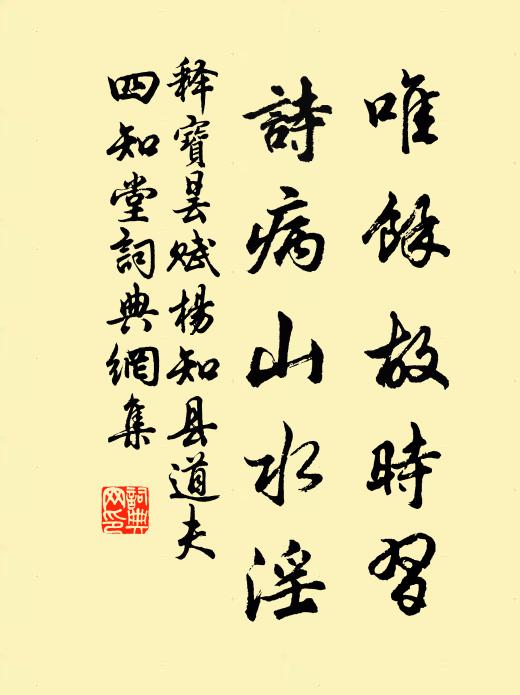 唯餘故時習
詩病山水淫
释寶昙赋楊知县道夫
四知堂詞典網集
詞典網印